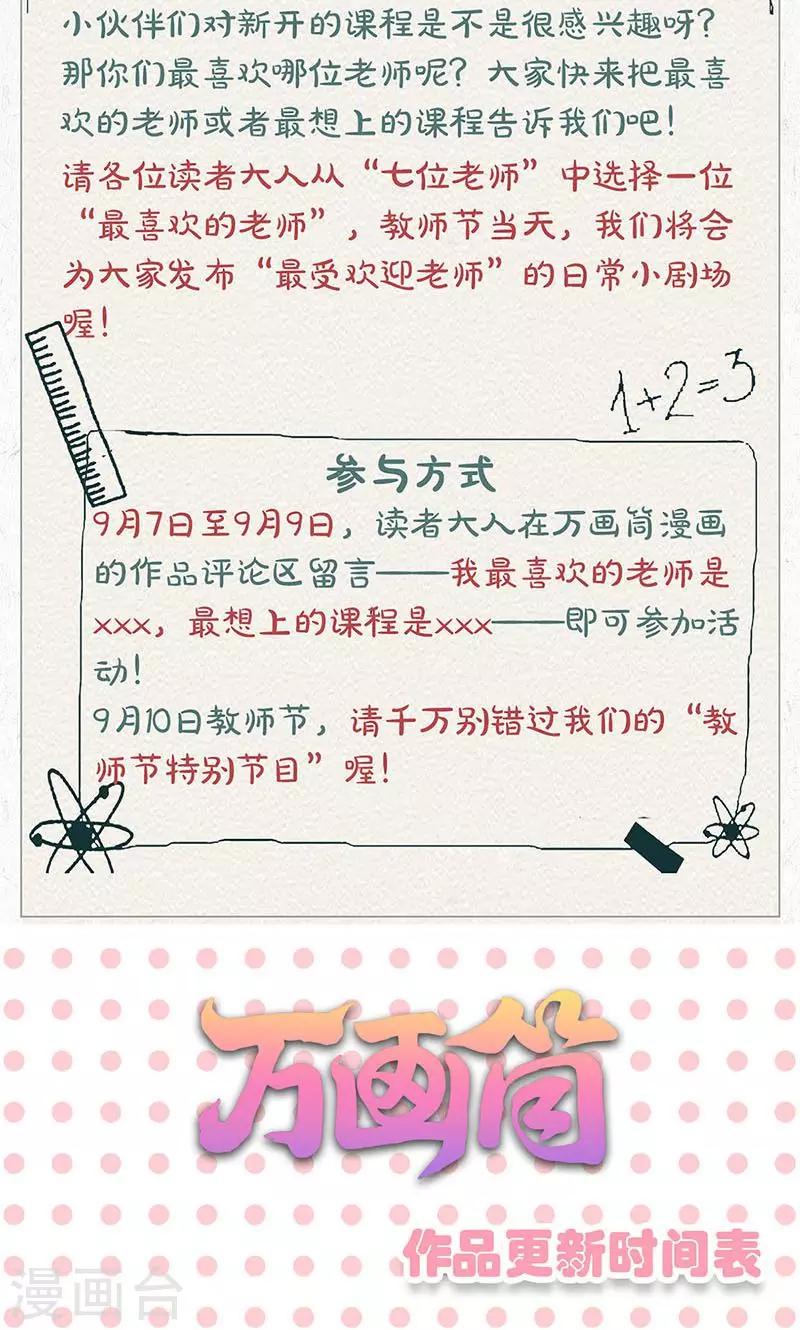 小伙伴们对新开的课程是不是很感兴趣呀？
那你们最喜欢哪位老师呢？大家快来把最喜
欢的老师或者最想上的课程告诉我们吧！
请各位读者大人从“七位老师”中选择一位
“最喜欢的老师”，教师节当天，我们将会
为大家发布“最受欢迎老师”的日常小剧场
喔！
1+2=3
参与方式
9月7日至9月9日，读者大人在万画筒漫画
的作品评论区留言——我最喜欢的老师是
xxx，最想上的课程是xxx——即可参加活
动！
9月10日教师节，请千万别错过我们的“教
师节特别节目”喔！
万画筒
作品更新时间表
漫画台